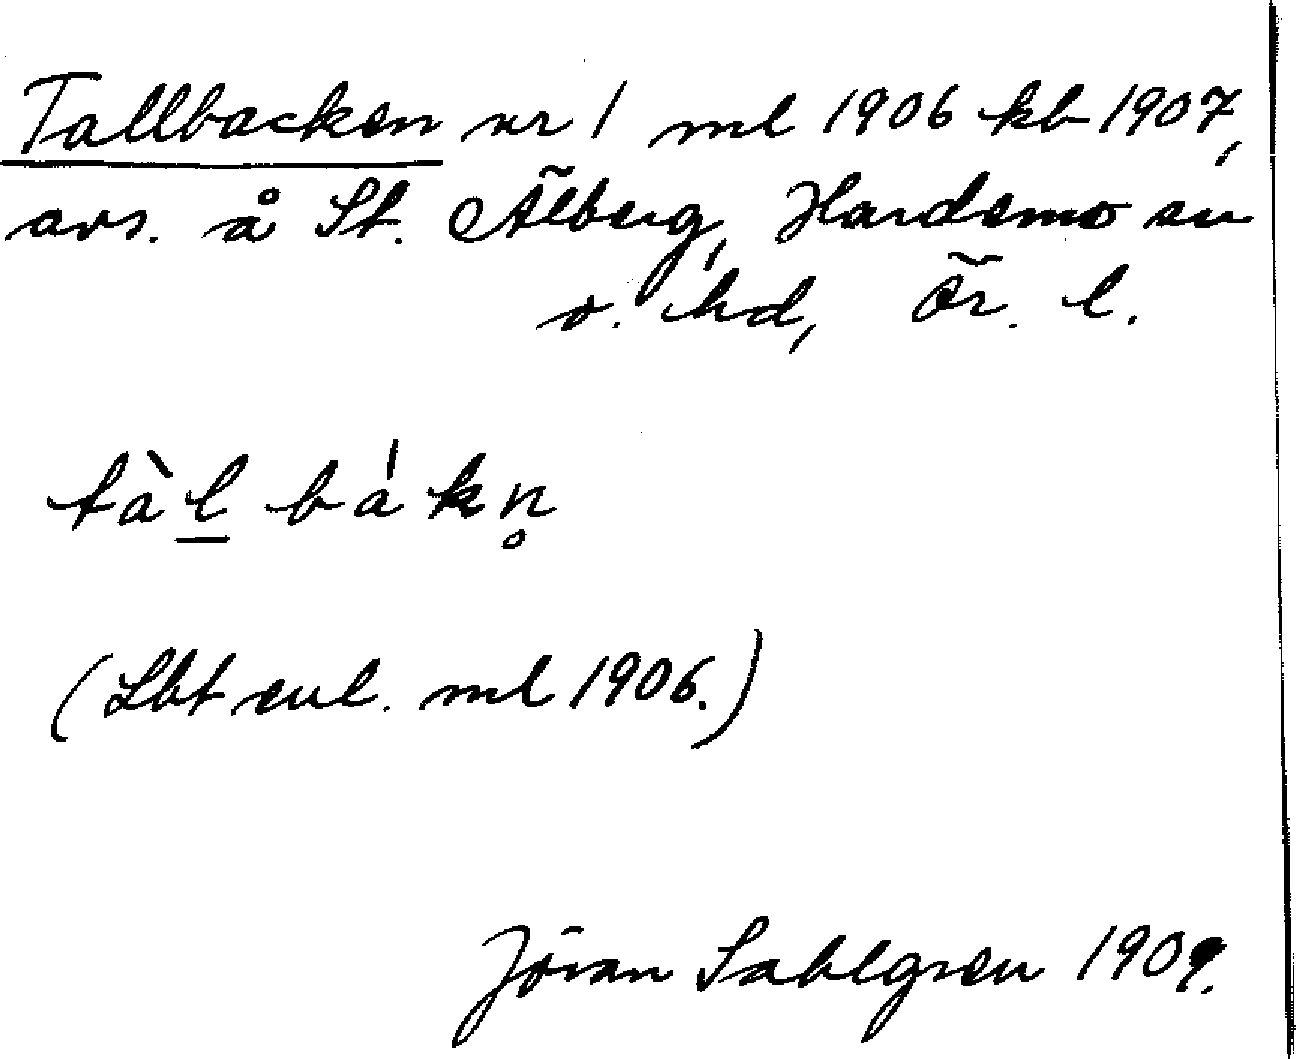 Tallbacken nr 1 ml 1906 kb 1907,
avs. å St. Älberg, Hardemo sn
o. hd, Ör. l.
tàl bákn̥
(Lbt enl. ml 1906.)
Jöran Sahlgren 1909.